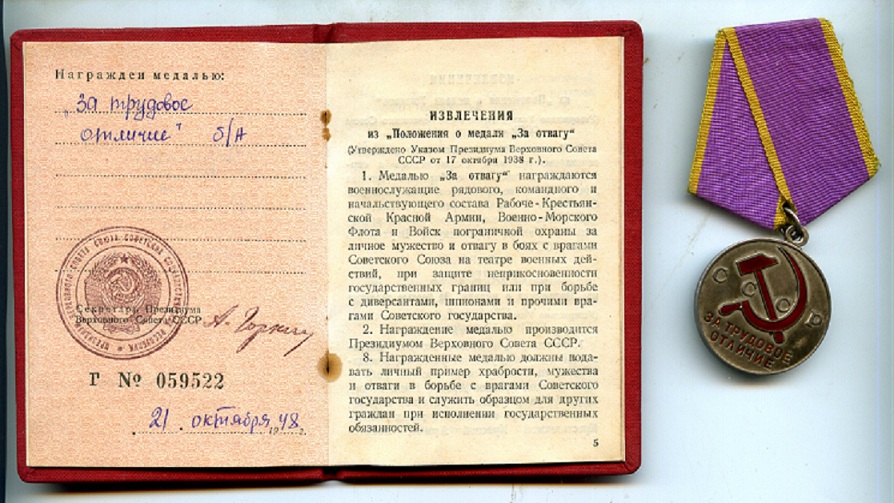 Награжден медалью:
„За трудовое
отличие" б/н
Секретарь Президиума
Верховного Совета СССР
А. Горкин
Г № 059522
21 октября 1948 г.
ИЗВЛЕЧЕНИЯ
из „Положения о медали „За отвагу"
(Утверждено Указом Президиума Верховного Совета
СССР от 17 октября 1938 г.).
1. Медалью „За отвагу" награждаются
военнослужащие рядового, командного и
начальствующего состава Рабоче-Крестьян-
ской Красной Армии, Военно-Морского
Флота и Войск пограничной охраны за
личное мужество и отвагу в боях с врагами
Советского Союза на театре военных дей-
ствий, при защите неприкосновенности
государственных границ или при борьбе
с диверсантами, шпионами и прочими вра-
гами Советского государства.
2. Награждение медалью производится
Президиумом Верховного Совета СССР.
8. Награжденные медалью должны пода-
вать личный пример храбрости, мужества
и отваги в борьбе с врагами Советского
государства и служить образцом для других
граждан при исполнении государственных
обязанностей.
5
СССР
ЗА ТРУДОВОЕ
ОТЛИЧИЕ